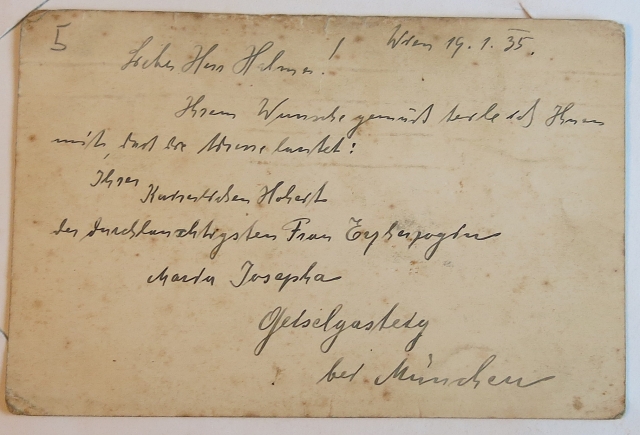 5
Wien 19. 1. 35.
Lieber Herr Helmer!
Ihrem Wunsche gemäß teile ich Ihnen
mit, dass die Adresse lautet:
Ihrer
Kaiserlichen Hoheit
der durchlauchtigsten Frau Erzherzogin
Maria Josepha
Geiselgasteig
bei München